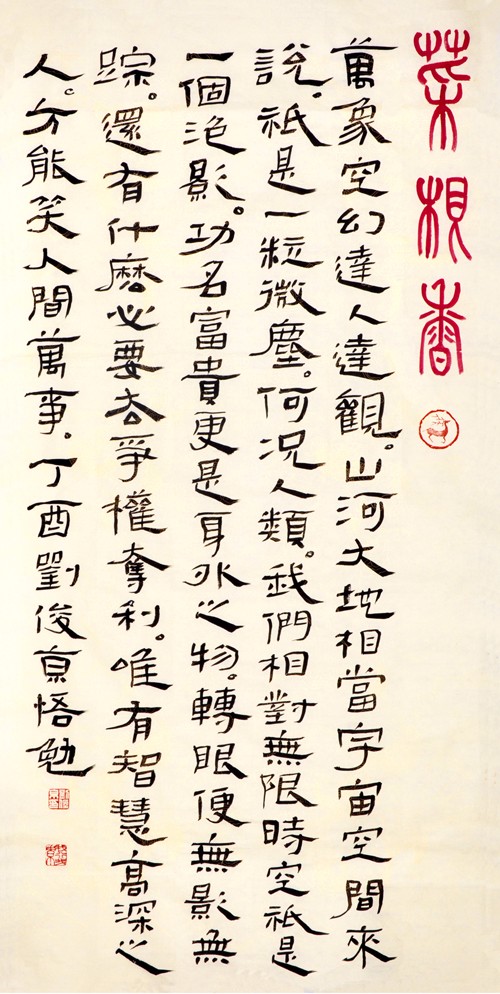 菜根香
萬象空幻達人達觀。山河大地相當宇宙空間來
說。祇是一粒微塵。何況人類。我們相對無限時空祇是
一個泡影。功名富貴更是身外之物。轉眼便無影無
踪。還有什麽必要去爭權奪利。唯有智慧高深之
人。方能笑人間萬事。丁酉劉俊京悟勉